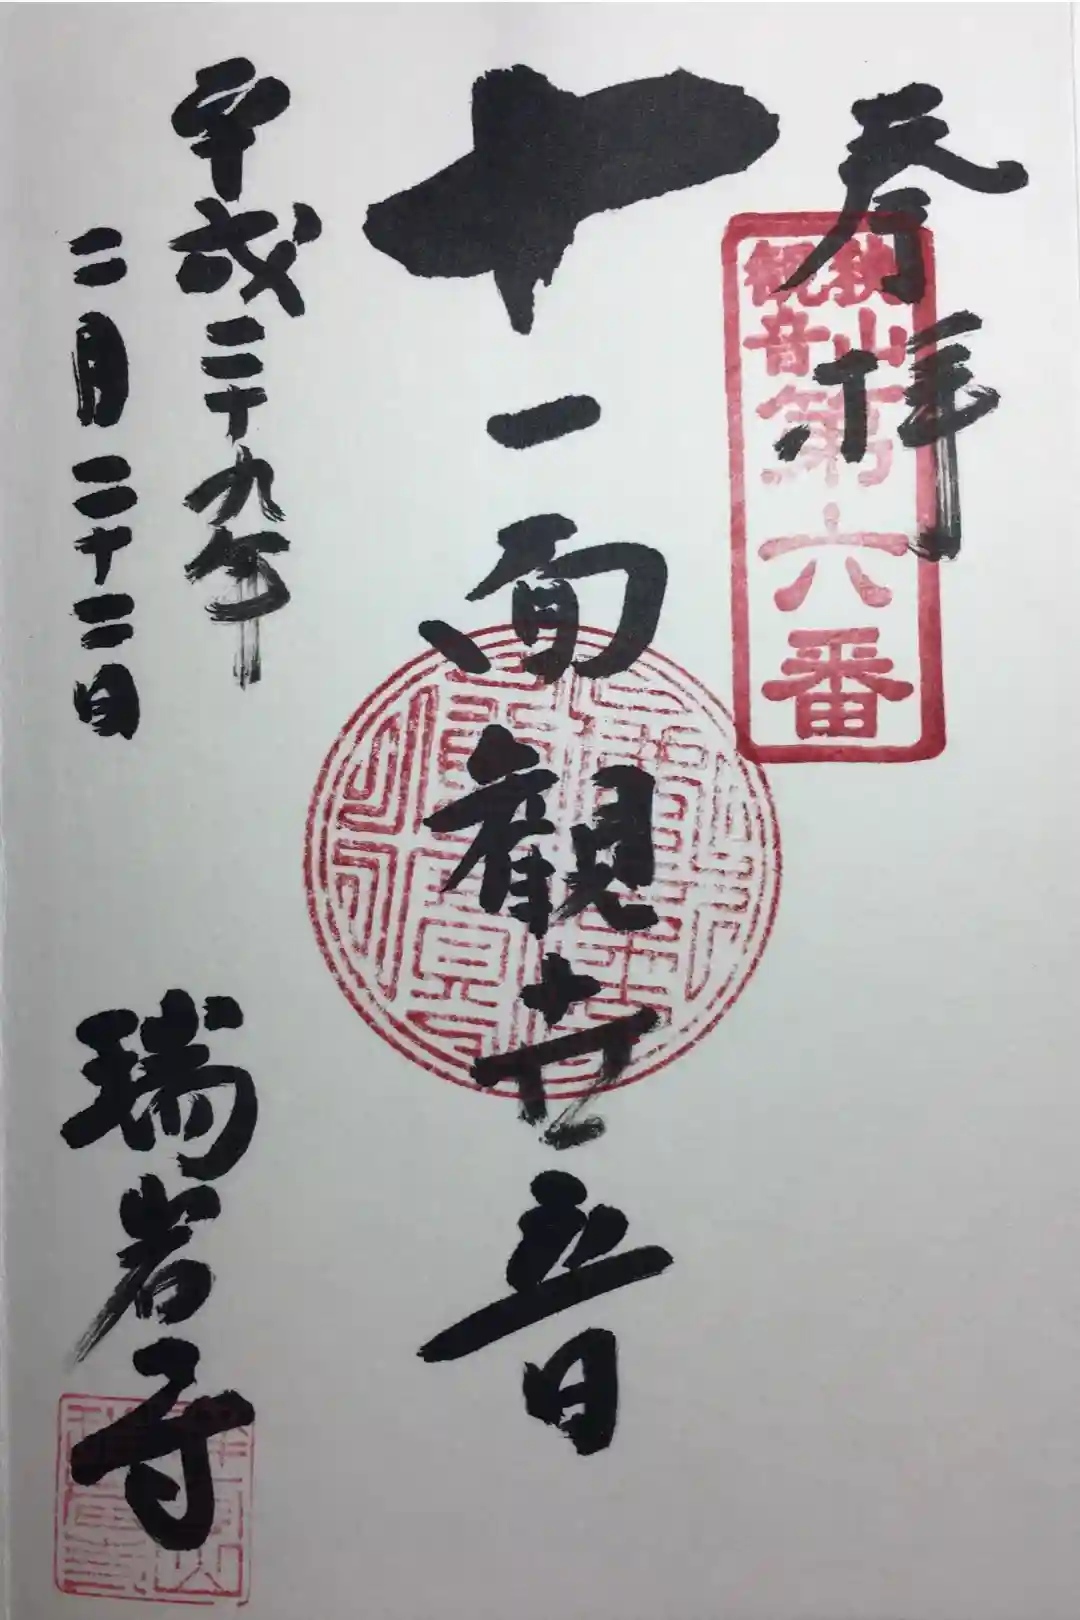 奉拝
狭山
観音
第六番
十一面観世音
平成二十九年
二月二十二日
瑞岩寺